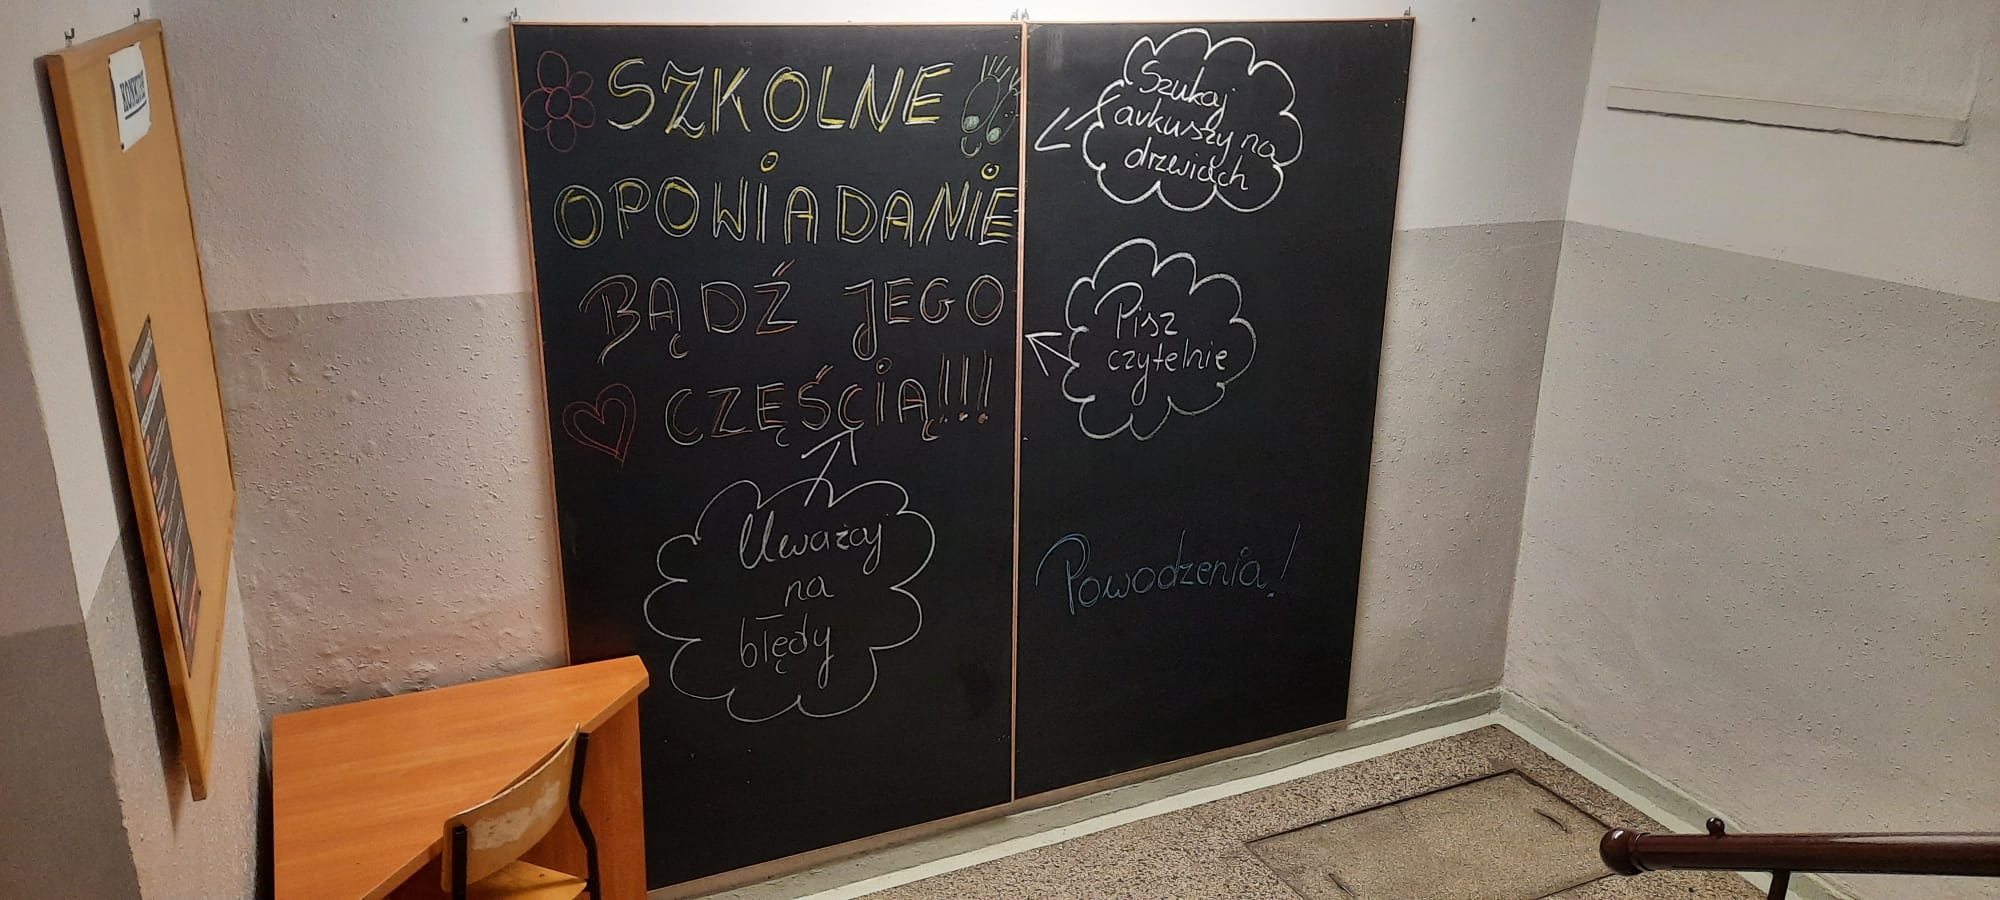 SZKOLNE
OPOWiADANiE
BĄDŹ JEGO
CZĘŚCiĄ!!!
Uważaj
na
błędy
Szukaj
arkuszy na
drzwiach
Pisz
czytelnie
Powodzenia!